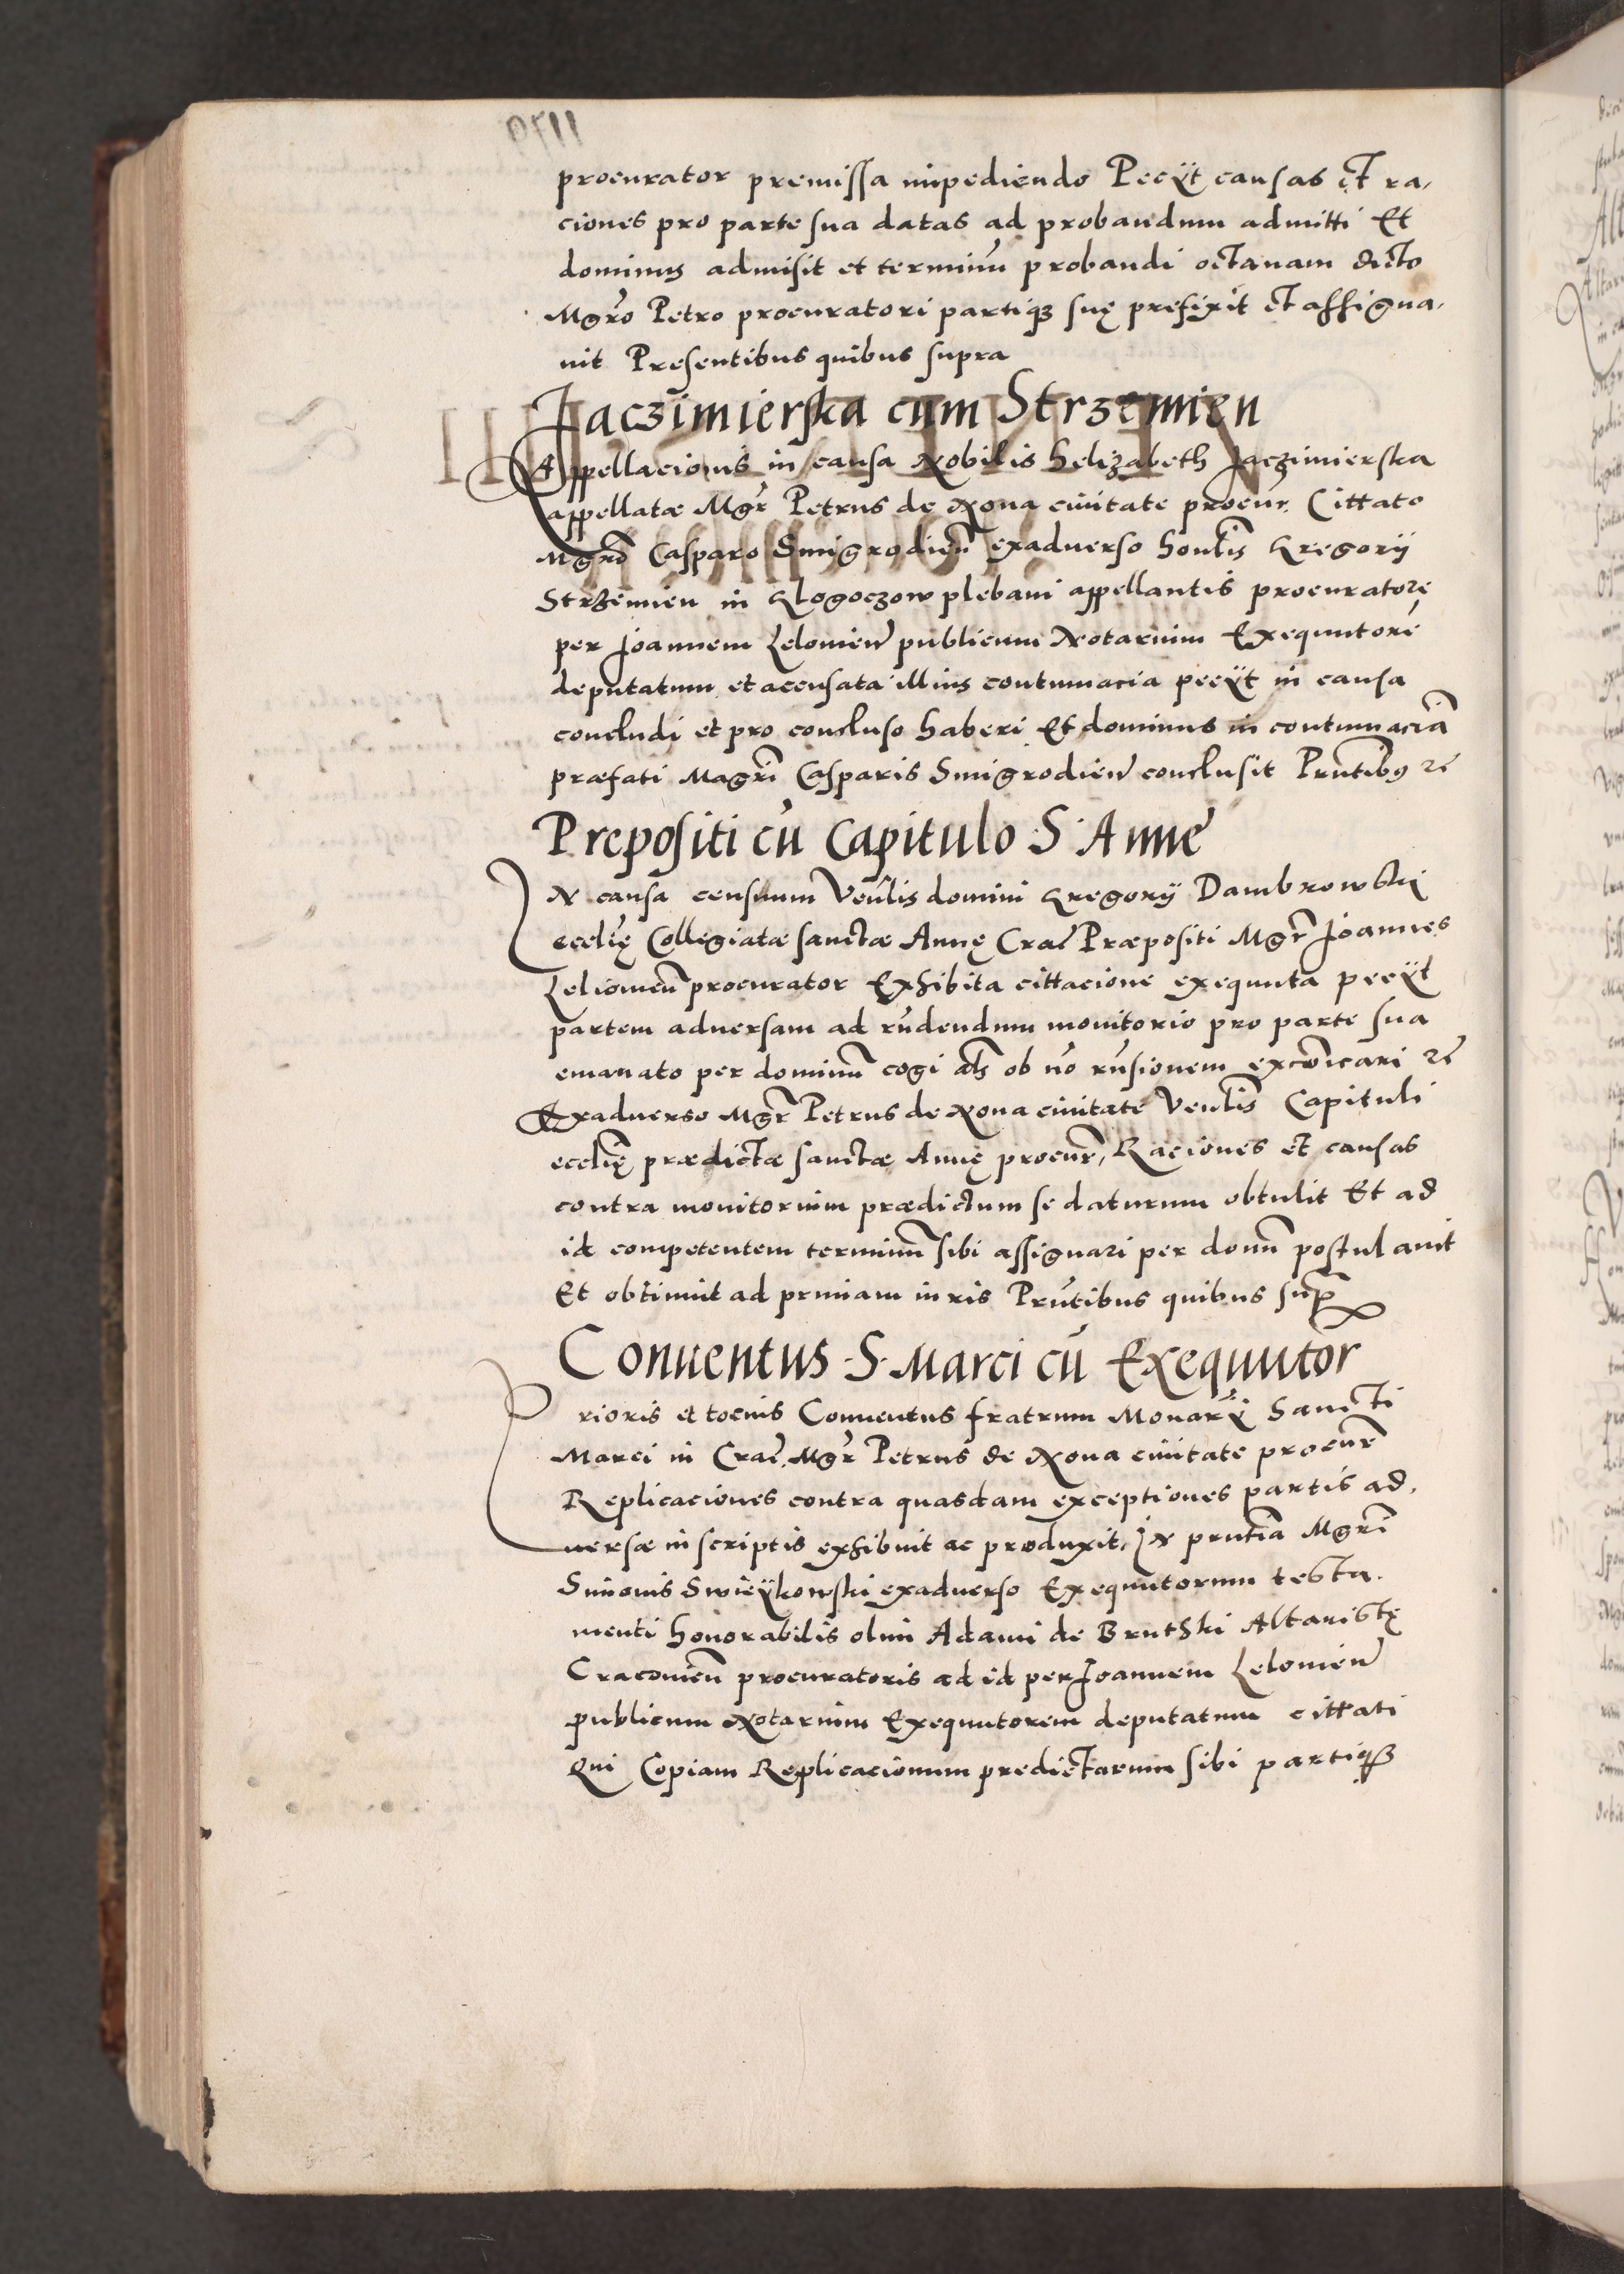 procurator premissa impediendo Peciit causas et ra,
ciones pro parte sua datas ad probandum admitti Et
dominus admisit et terminũ probandi octauam dicto
Mgr̃o Petro procuratori partiqꝫ suę prefixit et assigna,
uit Presentibus quibus supra
Jaczimierska cum Strzemien
Appellacionis in causa Nobilis helizabeth Jaczimierska
appellatæ Mgr̃ Petrus de Noua ciuitate procur. Cittato
Mgrõ Casparo Smigrodieñ exaduerso honl̃is Gregorij
Strzemien in Glogoczow plebani appellantis procuratore
per Joannem Lelouieñ publicum Notarium Exequutorẽ
deputatum et accusata illius contumacia peciit in causa
concludi et pro concluso haberi Et dominus in contumaciã
præfati Magr̃i Casparis Smigrodieñ conclusit Prñtibꝯ ꝛc̃
Prepositi cũ Capitulo S. Anne
IN causa censuum Venl̃is domini Gregorij Dambrowski
eccl̃ię Collegiatæ sanctæ Annę Crac̃ Præpositi Mgr̃ Joannes
Leliouieñ procurator Exhibita cittacione exequuta peciit
partem aduersam ad rñdendum monitorio pro parte sua
emanato per dominũ cogi al̃s ob nõ rñsionem excõicari ꝛc̃
Exaduerso Mgr̃ Petrus de Noua ciuitate Venl̃is Capituli
eccl̃ię prædictæ sanctæ Annę procur̃, Raciones et causas
contra monitorium prædictum se daturum obtulit Et ad
id competentem terminũ sibi assignari per dom̃ postulauit
Et obtinuit ad primam iuris Prñtibus quibus sup̃
Conuentus S. Marci cũ Exequutor
Prioris et tocius Conuentus fratrum Monarÿ Sancti
Marci in Crac̃, Mgr̃ Petrus de Noua ciuitate procur̃
Replicaciones contra quasdam exceptiones partis ad,
uersæ in scriptis exhibuit ac produxit, IN prñtia Mgr̃i
Simonis Swieÿkowski exaduerso Exequutorum testa.
menti honorabilis olim Adami de Brutski Altaristę
Cracouieñ procuratoris ad id per Joannem Lelouieñ
publicum Notarium Exequutorem deputatum cittati
Qui Copiam Replicacionum predictarum sibi partiqꝫ